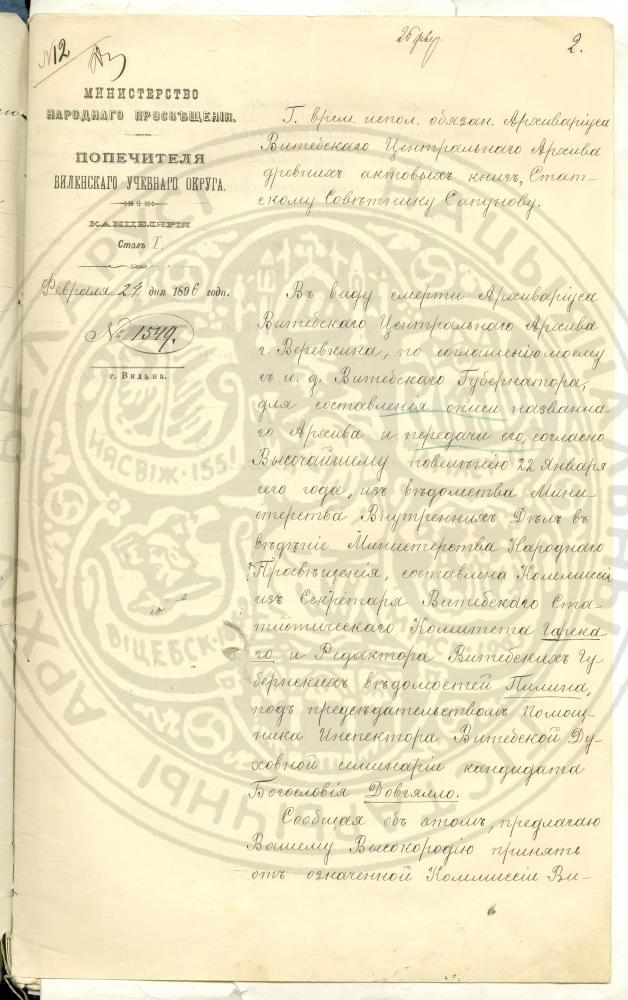 № 12
26 февр.
2.
МИНИСТЕРСТВО
НАРОДНАГО ПРОСВѢЩЕНІЯ.
ПОПЕЧИТЕЛЯ
ВИЛЕНСКАГО УЧЕБНАГО ОКРУГА.
КАНЦЕЛЯРІЯ
Столъ I.
Февраля 24 дня 1896 года.
№ 1549.
г. Вильна.
Г. врем. испол. обязан. Архиваріуса
Витебскаго Центральнаго Архива
древнихъ актовыхъ книгъ, Стат-
скому Совѣтнику Сапунову.
Въ виду смерти Архиваріуса
Витебскаго Центральнаго Архива
г. Веревкина, по соглашенію моему
съ и. д. Витебскаго Губернатора,
для составленія описи названна-
го Архива и передачи его, согласно
Высочайшему повелѣнію 22 Января
сего года, изъ вѣдомства Мини-
стерства Внутреннихъ Дѣлъ въ
вѣдѣніе Министерства Народнаго
Просвѣщенія, составлена Коммиссія
изъ Секретаря Витебскаго Ста-
тистическаго Комитета Гарска-
го и Редактора Витебскихъ Гу-
бернскихъ вѣдомостей Пилина,
подъ предсѣдательствомъ Помощ-
ника Инспектора Витебской Ду-
ховной семинаріи кандидата
Богословія Довгялло.
Сообщая объ этомъ, предлагаю
Вашему Высокородію принять
отъ означенной Коммиссіи Ви-
НЯСВІЖ·155
ВІЦЕБСК